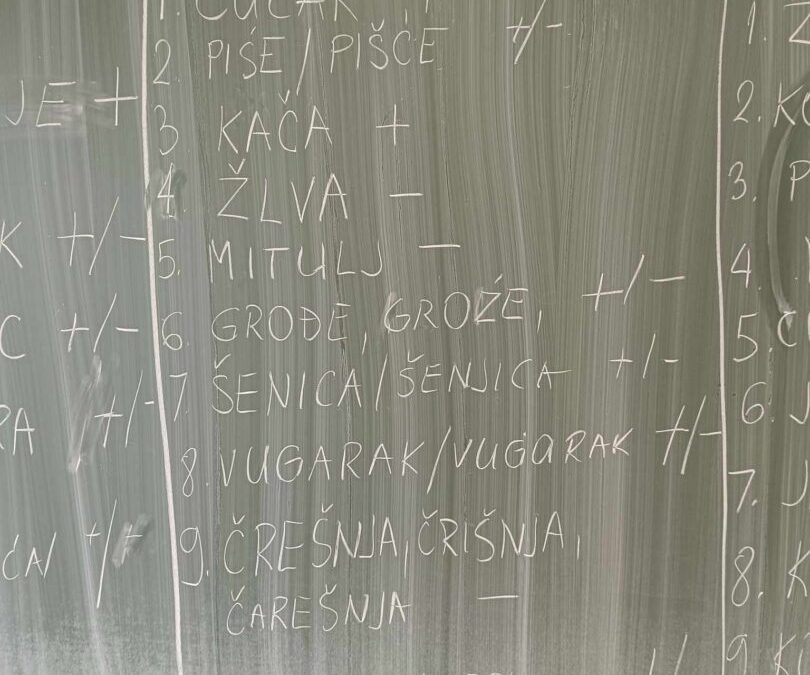 JE +
K +/-
C +/-
RA +/-
+/-
1.
2. PIŚE/PIŠĆE +/-
3 KAČA +
4. ŽLVA –
5. MITULJ –
6. GROĐE, GROŹE, +/-
7. ŠENICA/ŠENJICA +/-
8. VUGARAK/VUGARAK +/-
9. ČREŠNJA, ČRIŠNJA,
ČAREŠNJA –
1.
2. KO
3. P
4.
5.
6.
7. J
8. K
9.